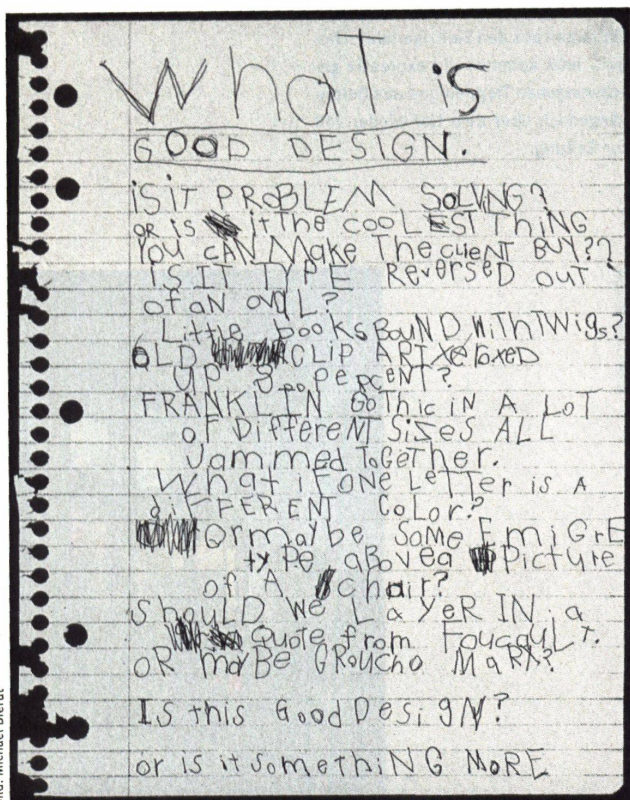 What is
GOOD DESIGN.
iS iT PROBLEM SOLViNG?
oR is it The cooLEST ThiNG
You cAN Make The clieNT BUY??
iS IT TYPE ReverseD ouT
of aN ovaL?
LittLe books BouND WiTh TWigs?
OLD CLiP ART XeRoxeD
UP PeRceNT?
FRANKLIN GoThic iN A LoT
oF DiffereNT SiZes ALL
Jammed ToGeTher.
What iF oNe LeTTer is A
diFFERENT CoLoR?
Or maybe SoMe EmiGrE
type aBove a Picture
of A chair?
ShouLD We LayeR IN a
Quote from FoucauLT.
oR mayBe GRoucho MaRX?
Is this GooD DesigN?
or is it SomethiNG MoRE